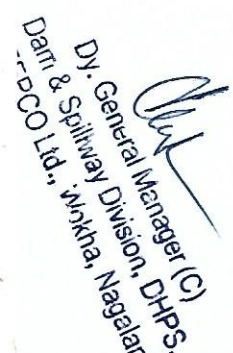 Dy. General Manager (C)
Dam & Spillway Division, DHPS,
EEPCO Ltd., Wokha, Nagalan